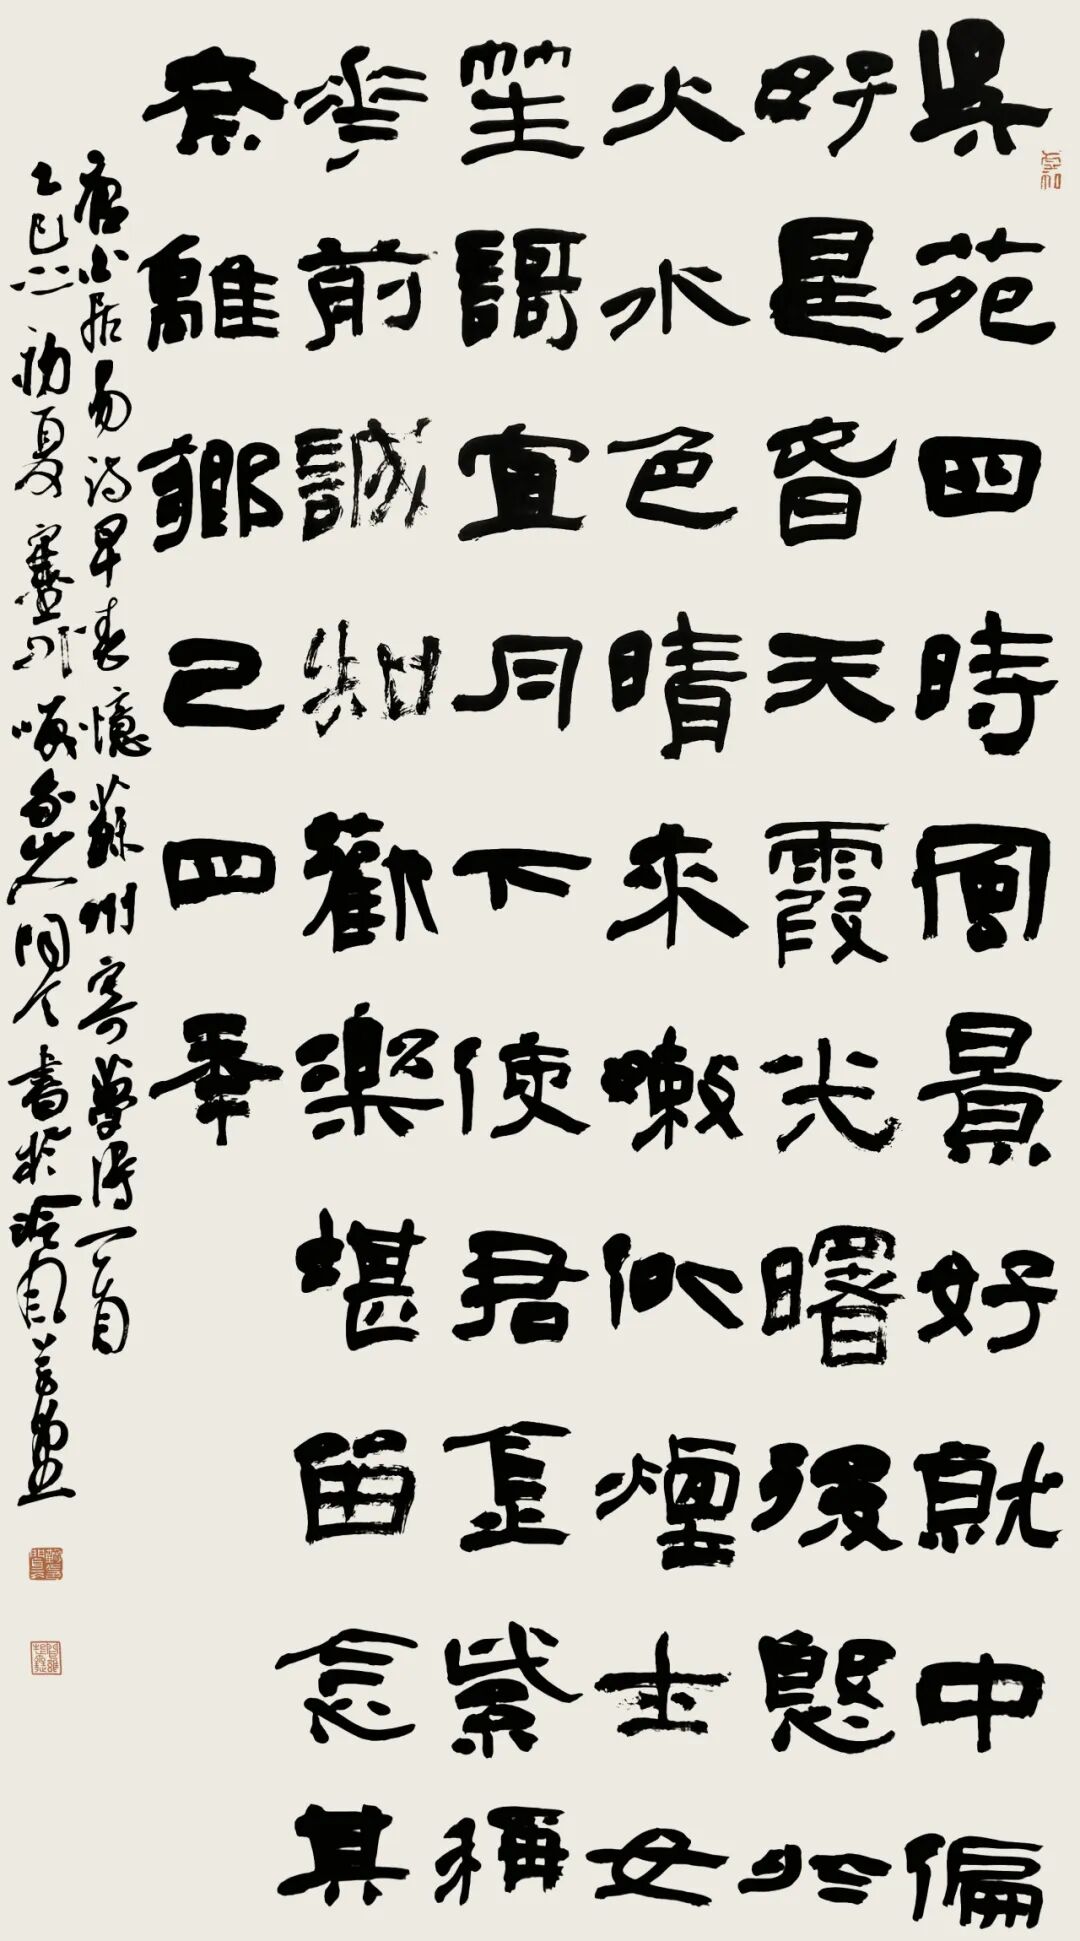 吳苑四時風景好就中偏
好是春天霞光曙後殷於
火水色晴來嫩似煙士女
笙謌宜月下使君金紫稱
花前誠知歡樂堪留念其
奈離鄉已四年
唐白居易诗早春憶蘇州寄夢得一首
乙巳初夏塞外山人書於